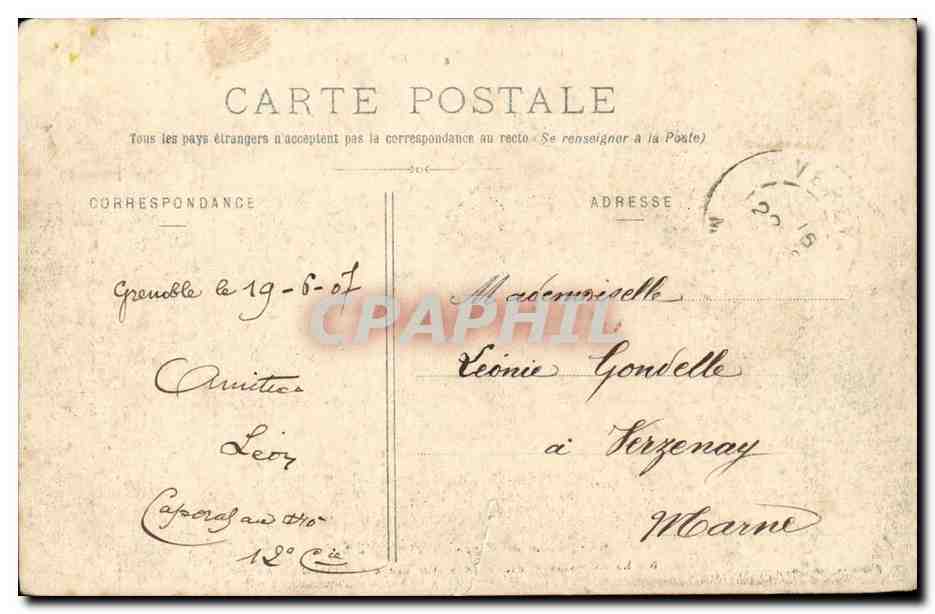 CARTE POSTALE
Tous les pays étrangers n'acceptent pas la correspondance au recto (Se renseigner à la Poste)
CORRESPONDANCE
ADRESSE
Grenoble le 19-6-07
Amitiés
Léon
Caporal au
12e Cie
Mademoiselle
Léonie Gondelle
à Verzenay
Marne
VER
22
CPAPHIL